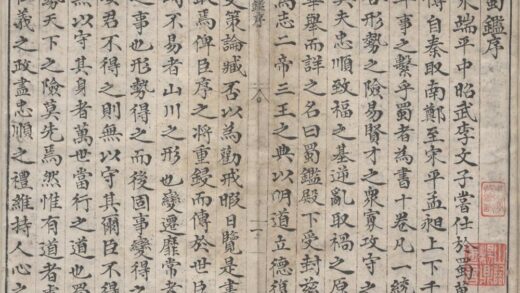 蜀鑑序
宋端平中昭武李文子嘗仕於蜀
傳自秦取南鄭至宋平孟昶上下千
事之繫乎蜀者為書十卷凡一統
合形勢之險易賢才之衆寡攻守之
與夫忠順致福之基逆亂取禍之原
畢舉而詳之名曰蜀鑑殿下受封
焉志二帝三王之典以明道立德
鑑序
文策論臧否以為勸戒暇日覽是書
取焉俾臣序之将重鋟而傳於世臣
不易者山川之形也變遷靡常者
之事也形勢得之而後固事變得之
君不得之則無以守其爾臣不得
無以守其身者萬世當行之道也
天下之險莫先焉然惟有道者
義之政盡忠順之禮維持人心之